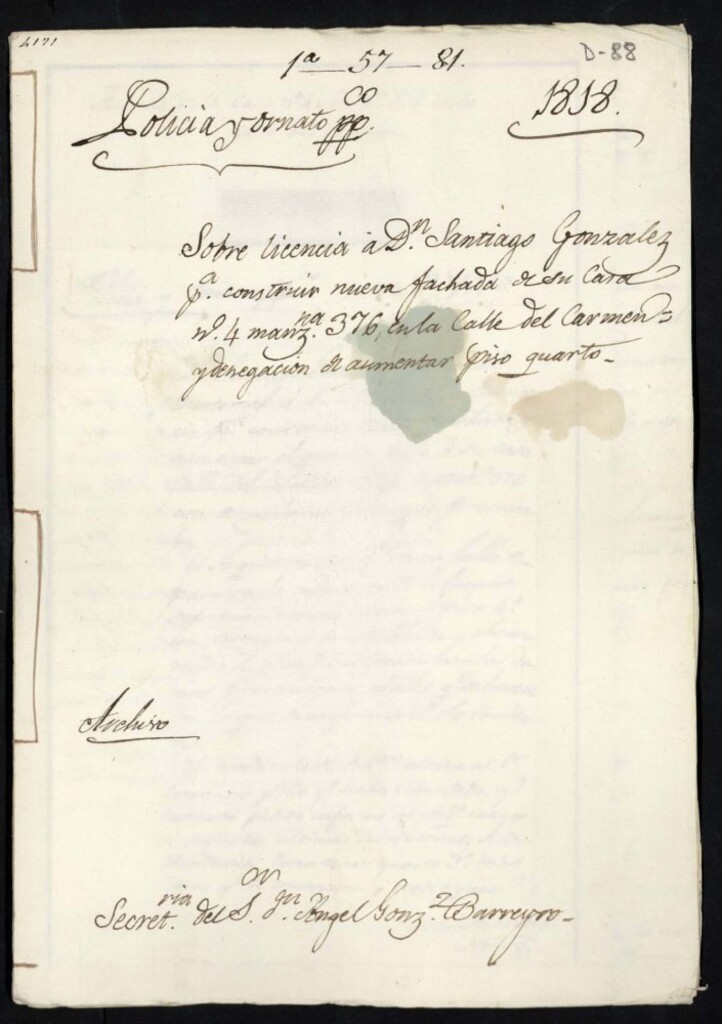 1ª—57—81.
D-88
Policia y ornato ppco.
1818.
Sobre licencia à Dn. Santiago Gonzalez
pª. construir nueva fachada de su Casa
nº. 4 manzna. 376, en la Calle del Carmen=
y denegacion de aumentar piso quarto-
Archivo
Secretria. del Sor. dn. Angel Gonzz. Barreyro-